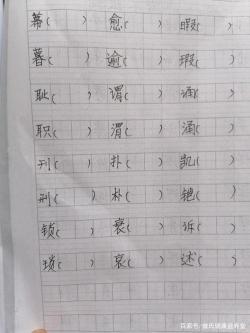 幕( ) 愈( ) 暇( )
暮( ) 逾( ) 瑕( )
耻( ) 谓( ) 诵( )
职( ) 渭( ) 涌( )
刊( ) 扑( ) 凯( )
刑( ) 朴( ) 铠( )
锁( ) 衰( ) 诉( )
琐( ) 哀( ) 述( )